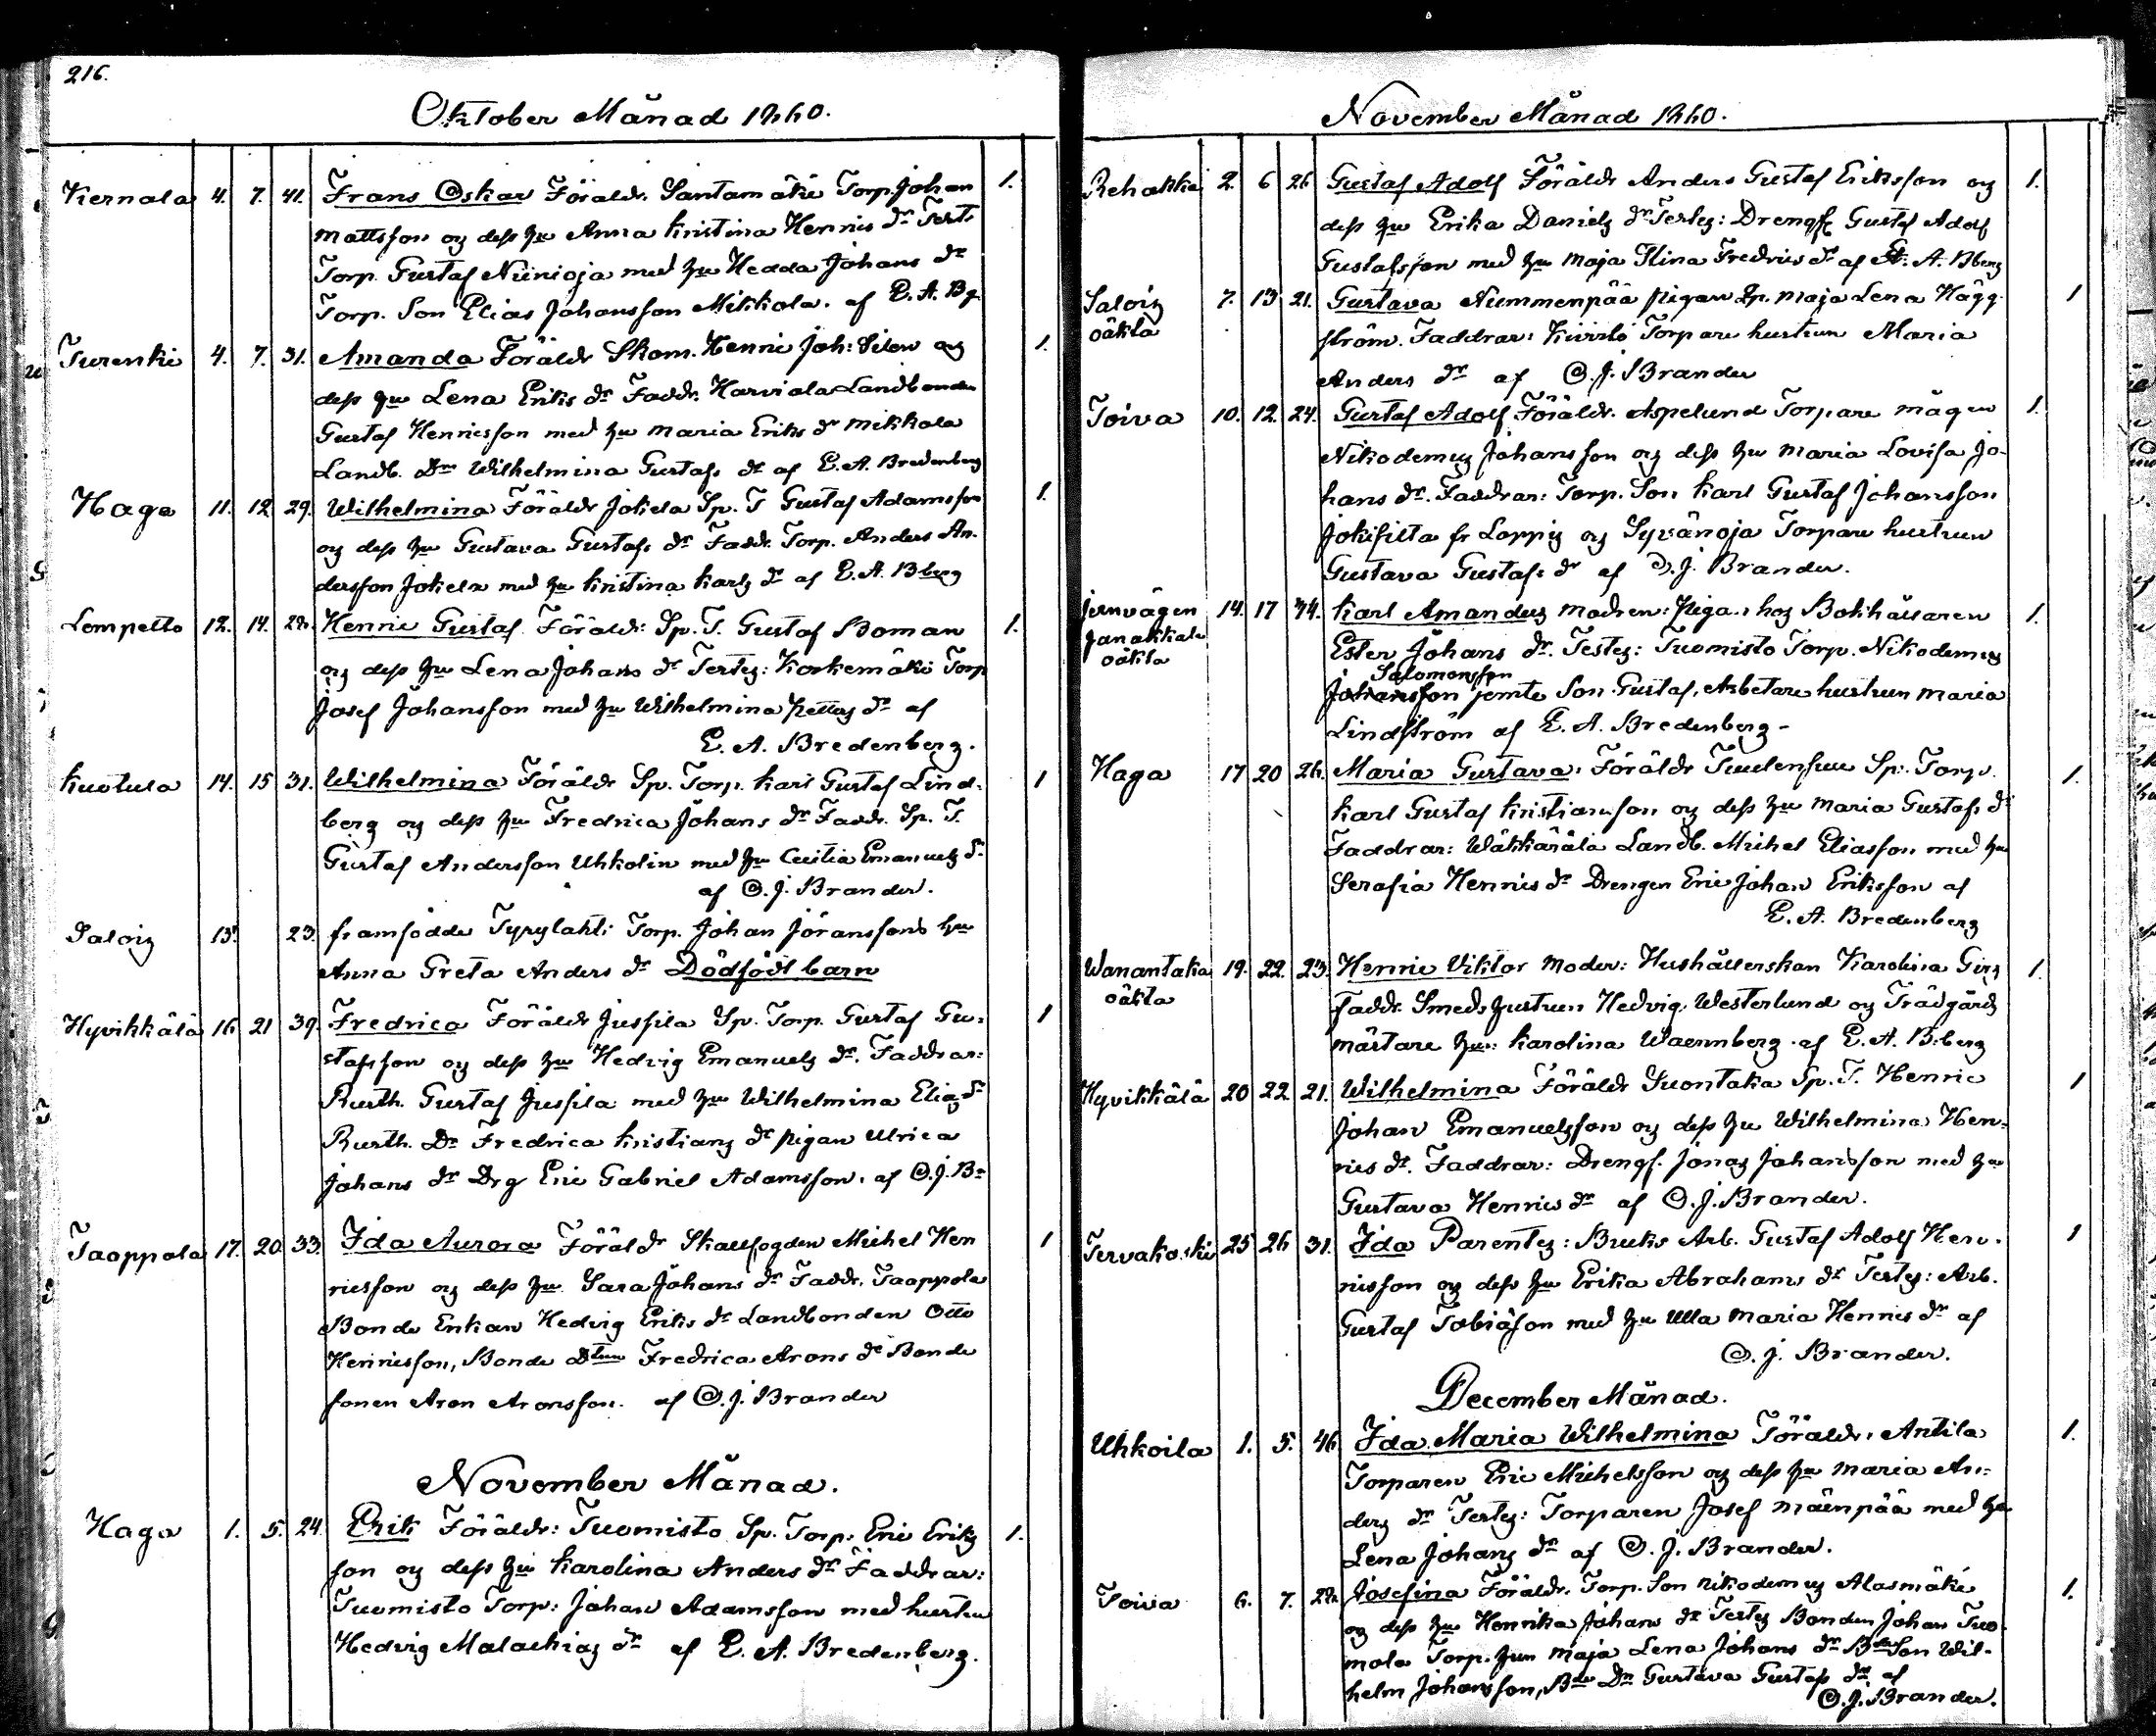 216.
Oktober Månad 1860.
Kernala 4. 7. 41. Frans Oskar Föräldr. Santamäki Torp. Johan 1.
Mattsson og dess hu Anna Kristina Henrics dr Test:
Torp. Gustaf Niinioja med hu Hedda Johans dr
Torp. Son Elias Johansson Mikkola. af E. A. Bg.
Turenki 4. 7. 31. Amanda Föräldr Skom. Henric Joh: Silen og 1.
dess hu Lena Eriks dr Faddr. Harviala Landbonden
Gustaf Henricsson med hu Maria Eriks dr Mikkola
Landb. Dr Wilhelmina Gustafs dr af E. A. Bredenberg
Haga 11. 12 29. Wilhelmina Föräldr Jokela Sp. T Gustaf Adamsson 1.
og dess hu Gustava Gustafs dr Faddr. Torp. Anders An-
dersson Jokela med hu Kristina Karls dr af E. A. Bberg
Lempetto 12. 14. 28. Henric Gustaf Föräldr: Sp. T. Gustaf Boman 1.
og dess hu Lena Johans dr Testes: Korkemäki Torp
Josef Johansson med hu Wilhelmina Pettas dr af
E. A. Bredenberg.
Kuotula 14. 15 31. Wilhelmina Föräldr Sp. Torp. Karl Gustaf Lind- 1
berg og dess hu Fredrica Johans dr Faddr. Sp. T.
Gustaf Andersson Uhkolin med hu Cecilia Emanuels dr
af O. J. Brander.
Salois 15. 23. framfödde Tyrylahti Torp. Johan Jöranssons hu
Anna Greta Anders dr Dödfödt barn
Hyvikkälä 16 21 39. Fredrica Föräldr Jussila Sp. Torp. Gustaf Gu- 1
stafsson og dess hu Hedvig Emanuels dr. Faddrar:
Rusth. Gustaf Jussila med hu Wilhelmina Elias dr
Rusth. Dr Fredrica Kristians dr pigan Ulrica
Johans dr Drg Eric Gabriel Adamsson. af O. J. Br
Taoppola 17. 20. 33. Ida Aurora Föräldr Skallfogden Michel Hen 1
ricsson og dess hu Sara Johans dr Faddr. Taoppola
Bonde Enkan Hedvig Eriks dr Landbonden Otto
Henricsson, Bonde Dtren Fredrica Arons dr Bonde
sonen Aron Aronsson. af O. J. Brander
November Månad.
Haga 1. 5. 24. Erik Föräldr: Tuomisto Sp. Torp: Eric Eriks 1.
son og dess hu Karolina Anders dr Faddrar:
Tuomisto Torp: Johan Adamsson med hustru
Hedvig Malachias dr af E. A. Bredenberg.
November Månad 1860.
Rehakka 2. 6 26 Gustaf Adolf Föräldr Anders Gustaf Eriksson og 1.
dess hu Erika Daniels dr Testes: Drengf Gustaf Adolf
Gustafsson med hu Maja Stina Fredrics dr af E. A. Bberg
Salois 7. 13 21. Gustava Nummenpää pigan Lp. Maja Lena Hägg- 1
oäkta ström. Faddrar: Kuivisto Torpare hustrun Maria
Anders dr af O. J. Brander
Toiva 10. 12. 24. Gustaf Adolf Föräldr. Aspelund Torpare mågen 1.
Nikodemus Johansson og dess hu Maria Lovisa Jo-
hans dr. Faddrar: Torp. Son Karl Gustaf Johansson
Jokisilta fr Loppis og Syvänoja Torpare hustrun
Gustava Gustafs dr af O. J. Brander.
Jernvägen 14. 17 34. Karl Amandus modren: Piga hos Bokhållaren 1.
Janakkala Ester Johans dr. Testes: Tuomisto Torp. Nikodemus
oäkta Salomonsson
Johansson jemte Son Gustaf, Arbetare hustrun Maria
Lindström af E. A. Bredenberg-
Haga 17 20 26. Maria Gustava Föräldr Sp. Torp. 1.
Karl Gustaf Kristiansson og dess hu Maria Gustafs dr
Faddrar: Wäkkärälä Landb. Michel Eliasson med hu
Serafia Henrics dr Drengen Eric Johan Eriksson af
E. A. Bredenberg
Wanantaka 19. 22. 23. Henric Viktor Moder: Hushållerskan Karolina Girs 1.
oäkta Faddr. Smeds hustrun Hedvig Westerlund og Trädgårds
mästare hu: Karolina Waernberg af E. A. B:berg
Hyvikkälä 20 22. 21. Wilhelmina Föräldr Suontaka Sp. T. Henric 1
Johan Emanuelsson og dess hu Wilhelmina Hen-
rics dr. Faddrar: Drengf. Jonas Johansson med hu
Gustava Henrics dr af O. J. Brander.
Tervakoski 25 26 31. Ida Parentes: Bruks Arb. Gustaf Adolf Hen- 1
ricsson og dess hu Erika Abrahams dr Testes: Arb.
Gustaf Tobiasson med hu Ulla Maria Henrics dr af
O. J. Brander.
December Månad.
Uhkoila 1. 5. 46 Ida Maria Wilhelmina Föräldr. Antila 1.
Torparen Eric Michelsson og dess hu Maria An-
ders dr Testes: Torparen Josef Mäenpää med hu
Lena Johans dr af O. J. Brander.
Toiva 6. 7. 28. Josefina Föräldr. Torp. Son Nikodemus Alasmäki 1.
og dess hu Henrika Johans dr Testes Bonden Johan Tuo-
mola Torp. hun Maja Lena Johans dr Bdeson Wil-
helm Johansson, Bde Dr Gustava Gustafs dr af
O. J. Brander.